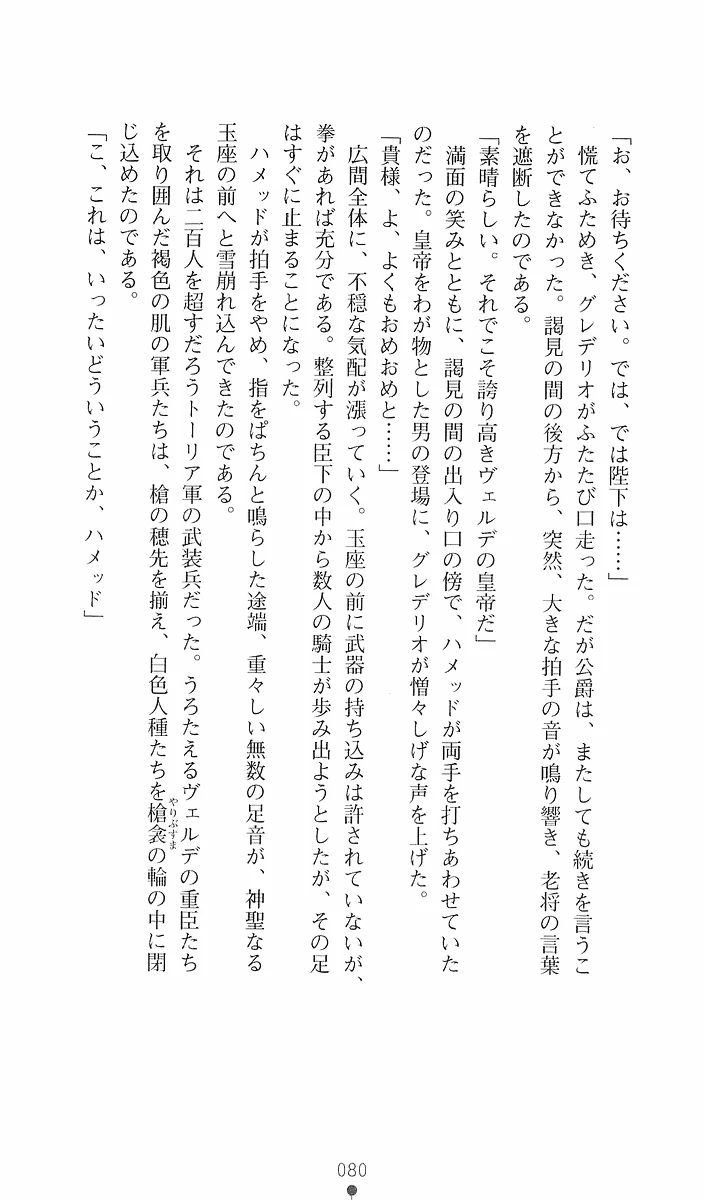 「お、お待ちください。では、では陛下は……」
　慌てふためき、グレデリオがふたたび口走った。だが公爵は、またしても続きを言うこ
とができなかった。謁見の間の後方から、突然、大きな拍手の音が鳴り響き、老将の言葉
を遮断したのである。
「素晴らしい。それでこそ誇り高きヴェルデの皇帝だ」
　満面の笑みとともに、謁見の間の出入り口の傍で、ハメッドが両手を打ちあわせていた
のだった。皇帝をわが物とした男の登場に、グレデリオが憎々しげな声を上げた。
「貴様、よ、よくもおめおめと……」
　広間全体に、不穏な気配が漲っていく。玉座の前に武器の持ち込みは許されていないが、
拳があれば充分である。整列する臣下の中から数人の騎士が歩み出ようとしたが、その足
はすぐに止まることになった。
　ハメッドが拍手をやめ、指をぱちんと鳴らした途端、重々しい無数の足音が、神聖なる
玉座の前へと雪崩れ込んできたのである。
　それは二百人を超すだろうトーリア軍の武装兵だった。うろたえるヴェルデの重臣たち
を取り囲んだ褐色の肌の軍兵たちは、槍の穂先を揃え、白色人種たちを槍衾の輪の中に閉
やりぶすま
じ込めたのである。
「こ、これは、いったいどういうことか、ハメッド」
080